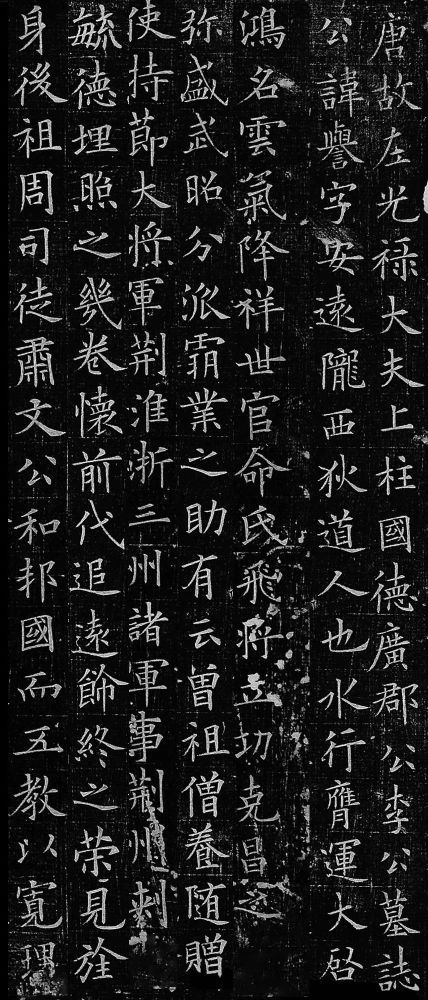 唐故左光祿大夫上柱國德廣郡公李公墓誌
公諱譽字安遠隴西狄道人也水行膺運大啓
鴻名雲氣降祥世官命氏飛將立功克昌之
弥盛武昭分派霸業之助有云曾祖僧養随贈
使持莭大將軍荆淮浙三州諸軍事荆州刺
毓德埋照之幾卷懷前代追遠餝終之荣見於
身後祖周司徒肅文公和邦國而五教以寬理